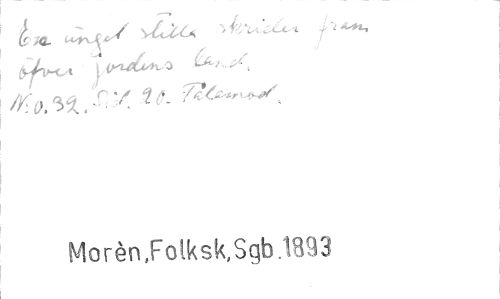 En ängel stilla skrider fram
öfver jordens land.
N:o. 32. Sid. 20. Tålamod.
Morèn,Folksk,Sgb.1893